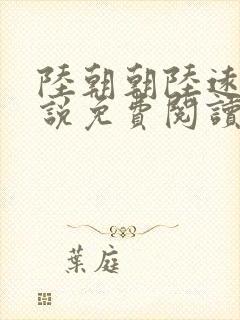 陸朝朝陸遠
說免費閱讀
葉庭